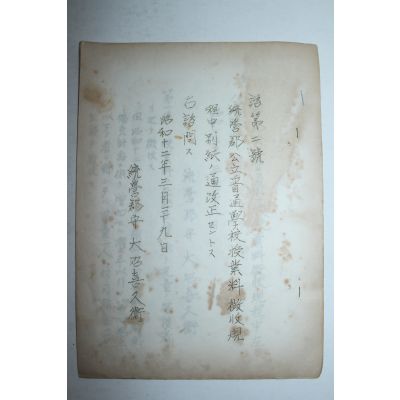 諮第二號
統營郡公立普通學校授業料徵收規
程中別紙ノ通改正セントス
右諮問ス
昭和十二年三月二十九日
統營郡守 大 喜久衛